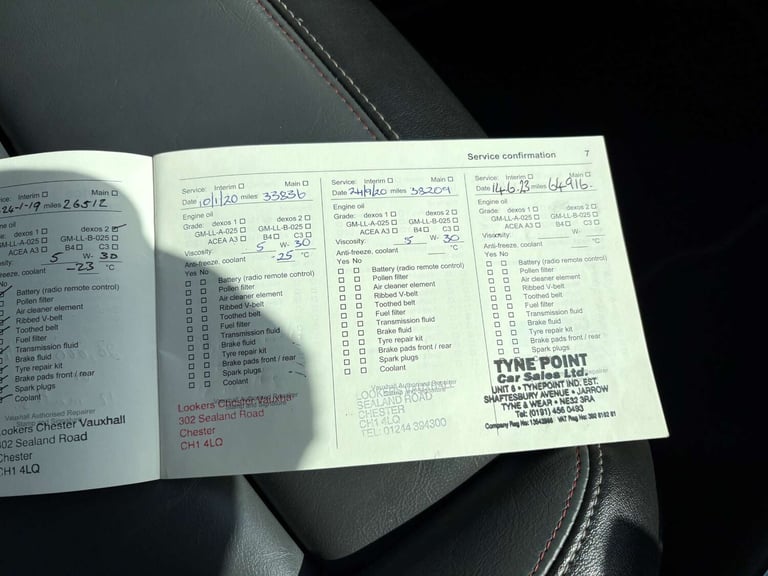 Service confirmation 7
ice: Interim Main
24-1-19 miles 26512
ne oil
dexos 1 dexos 2
GM-LL-A-025 GM-LL-B-025
ACEA A3 B4 C3
sity: 5 W- 30
reeze, coolant -23 °C
No
Battery (radio remote control)
Pollen filter
Air cleaner element
Ribbed V-belt
Toothed belt
Fuel filter
Transmission fluid
Brake fluid
Tyre repair kit
Brake pads front / rear
Spark plugs
Coolant
Vauxhall Authorised Repairer
ookers Chester Vauxhall
302 Sealand Road
Chester
CH1 4LQ
Service: Interim Main
Date 10/1/20 miles 33836
Engine oil
Grade: dexos 1 dexos 2
GM-LL-A-025 GM-LL-B-025
ACEA A3 B4 C3
Viscosity: 5 W- 30
Anti-freeze, coolant -25 °C
Yes No
Battery (radio remote control)
Pollen filter
Air cleaner element
Ribbed V-belt
Toothed belt
Fuel filter
Transmission fluid
Brake fluid
Tyre repair kit
Brake pads front / rear
Spark plugs
Coolant
Vauxhall Authorised Repairer
Stamp and signature
Lookers Chester Vauxhall
302 Sealand Road
Chester
CH1 4LQ
Service: Interim Main
Date 24/9/20 miles 38209
Engine oil
Grade: dexos 1 dexos 2
GM-LL-A-025 GM-LL-B-025
ACEA A3 B4 C3
Viscosity: 5 W- 30
Anti-freeze, coolant °C
Yes No
Battery (radio remote control)
Pollen filter
Air cleaner element
Ribbed V-belt
Toothed belt
Fuel filter
Transmission fluid
Brake fluid
Tyre repair kit
Brake pads front / rear
Spark plugs
Coolant
Vauxhall Authorised Repairer
SEALAND ROAD
CHESTER
CH1 4LQ
TEL: 01244 394300
Service: Interim Main
Date 14.6.23 miles 64916.
Engine oil
Grade: dexos 1 dexos 2
GM-LL-A-025 GM-LL-B-025
ACEA A3 B4 C3
Viscosity: W-
Anti-freeze, coolant °C
Yes No
Battery (radio remote control)
Pollen filter
Air cleaner element
Ribbed V-belt
Toothed belt
Fuel filter
Transmission fluid
Brake fluid
Tyre repair kit
Brake pads front / rear
Spark plugs
TYNE POINT
Car Sales Ltd.
UNIT 6 • TYNEPOINT IND. EST.
SHAFTESBURY AVENUE • JARROW
TYNE & WEAR • NE32 3RA
Tel: (0191) 456 0493